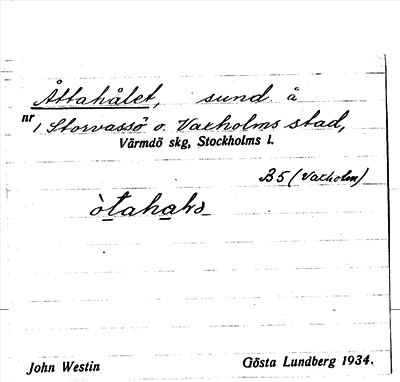 Åttahålet, sund å
nr
1 Storvassö o. Vaxholms stad,
Värmdö skg, Stockholms l.
B5 (Vaxholm)
òtahalɜ
John Westin
Gösta Lundberg 1934.